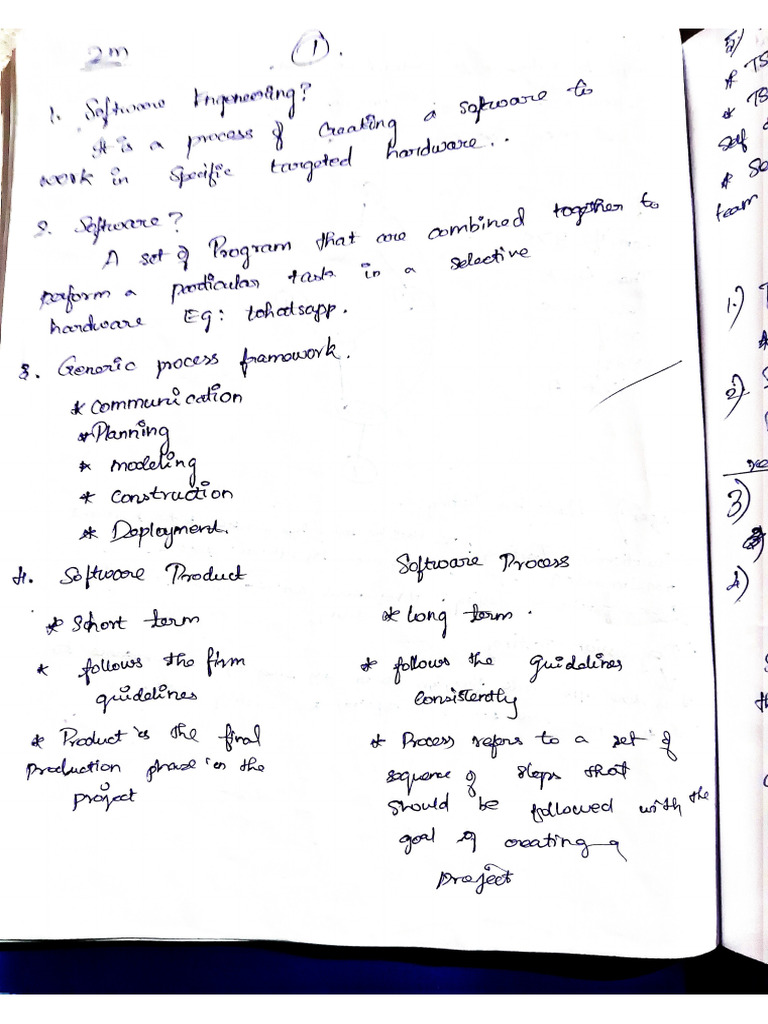 2m
1.
1. Software Engeneering?
It is a process of creating a software to
work in specific targeted hardware..
2. Software?
A set of Program that are combined together to
perform a particular task in a selective
hardware Eg: Whatsapp.
3. Generic process framework.
* Communication
* Planning
* modeling
* Construction
* Deployment.
4. Software Product
Software Process
* Short term
* Long term.
* follows the firm
guidelines
* follows the guidelines
Consistently
* Product is the final
production phase in the
project
* Process refers to a set of
sequence of steps that
should be followed with the
goal of creating a
project
5)
* TS
* TS
self
* Se
team
1.)
2)
3)
4)